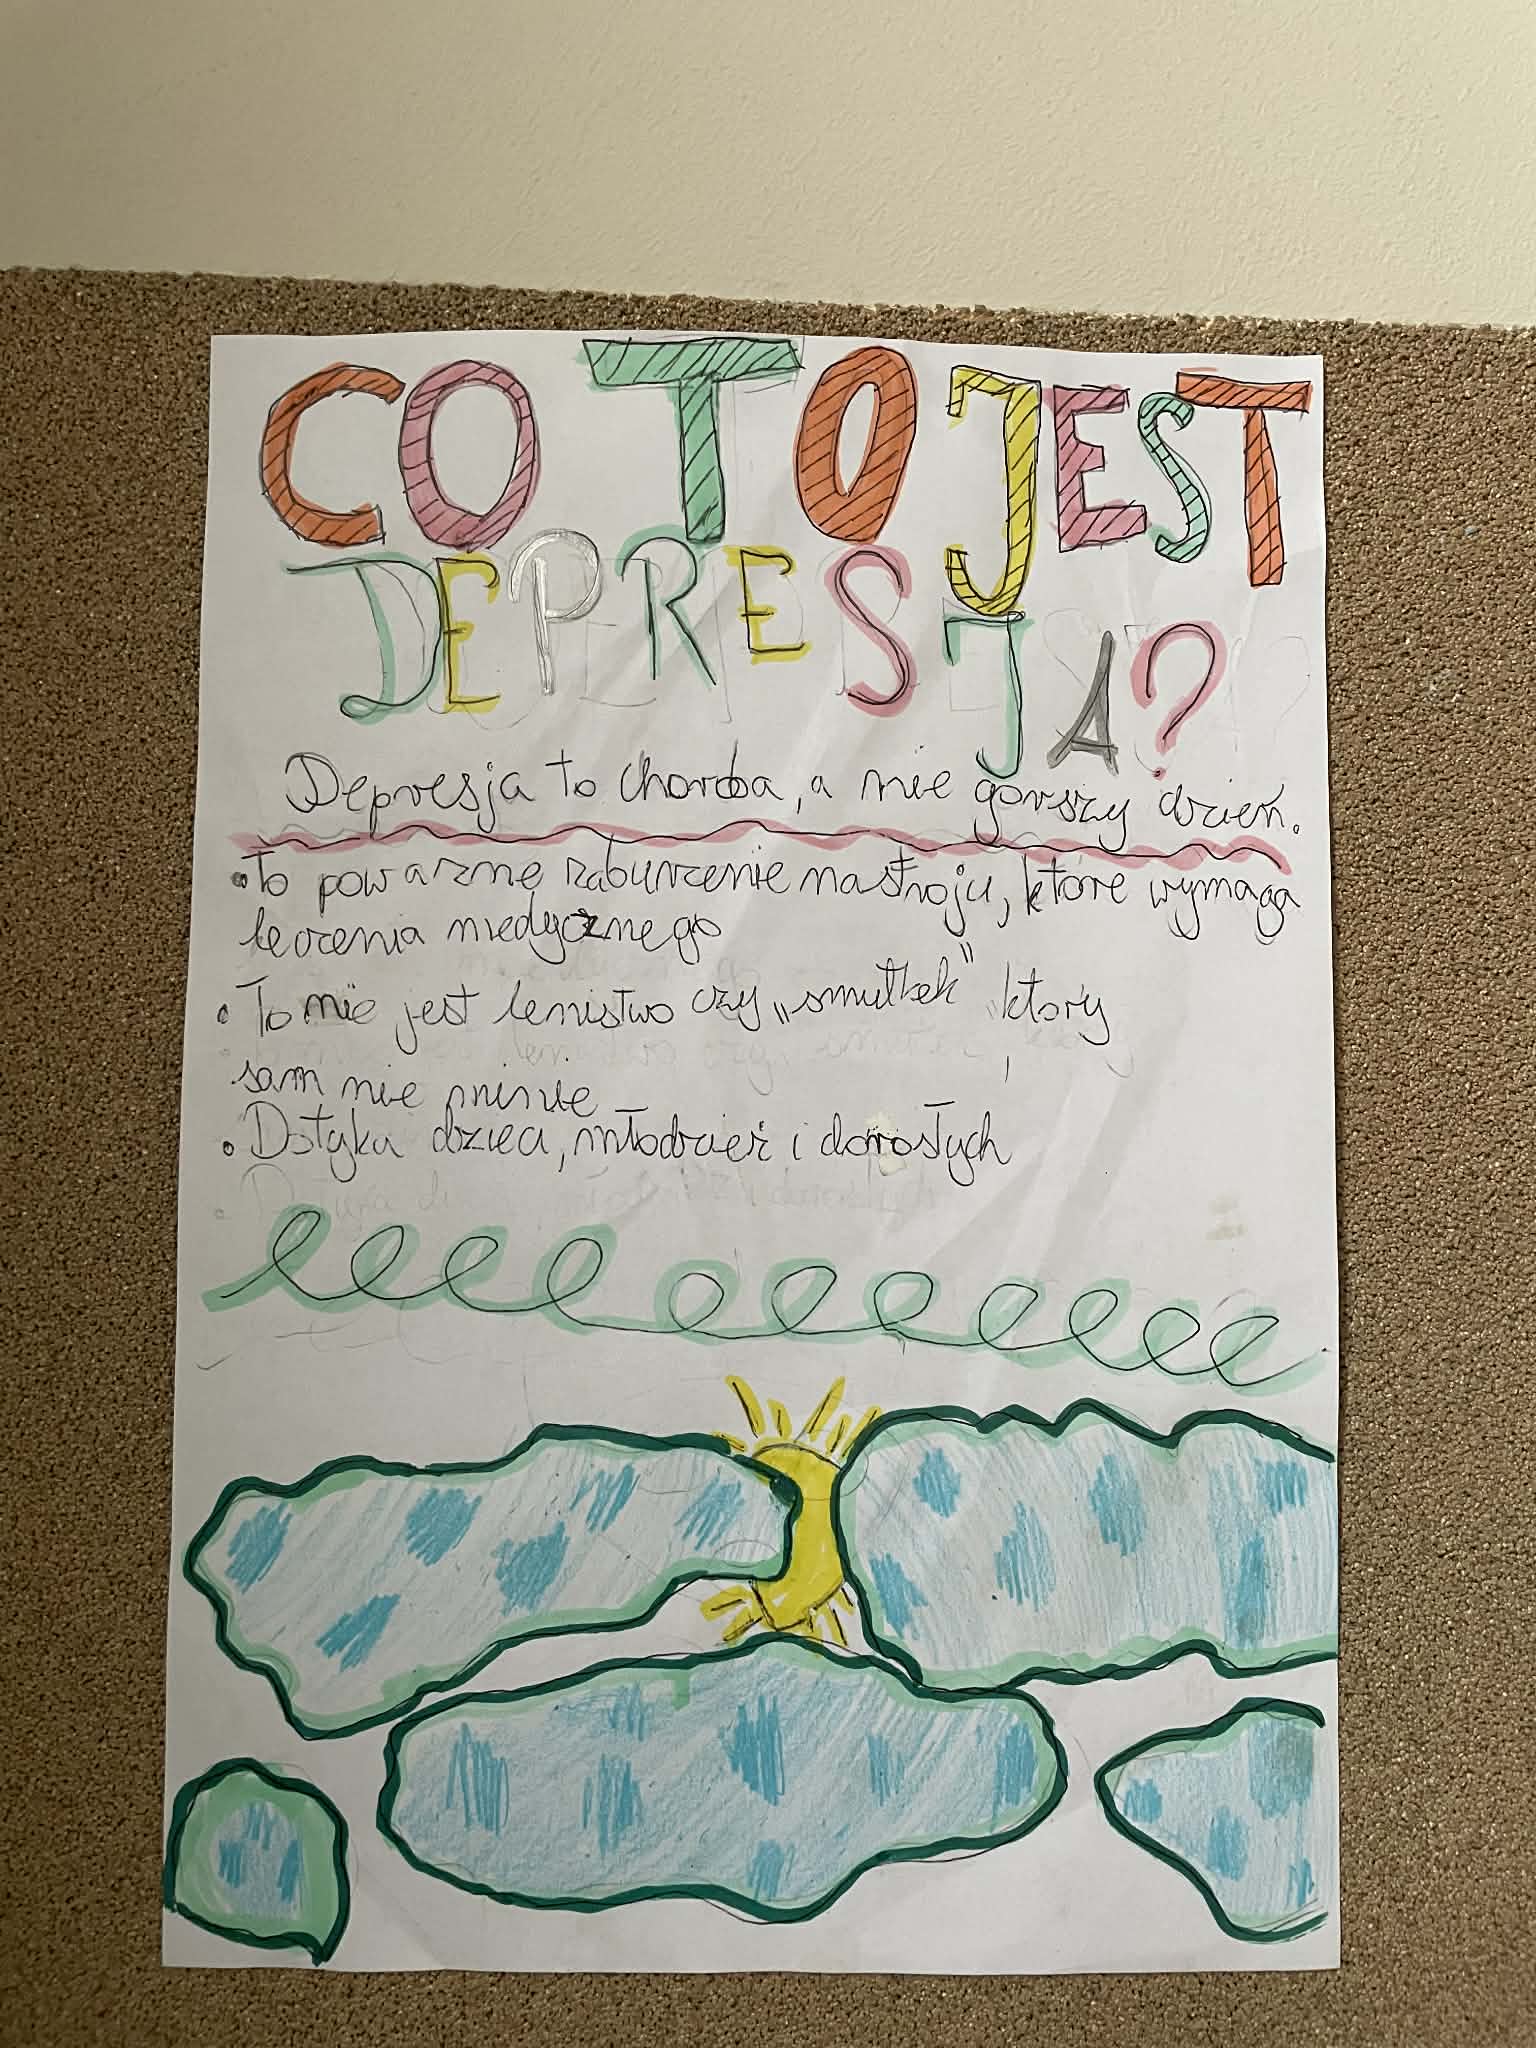 CO TO JEST
DEPRESJA?
Depresja to choroba, a nie gorszy dzień.
• To poważne zaburzenie nastroju, które wymaga
leczenia medycznego
• To nie jest lenistwo czy „smutek” który
sam nie minie
• Dotyka dzieci, młodzież i dorosłych